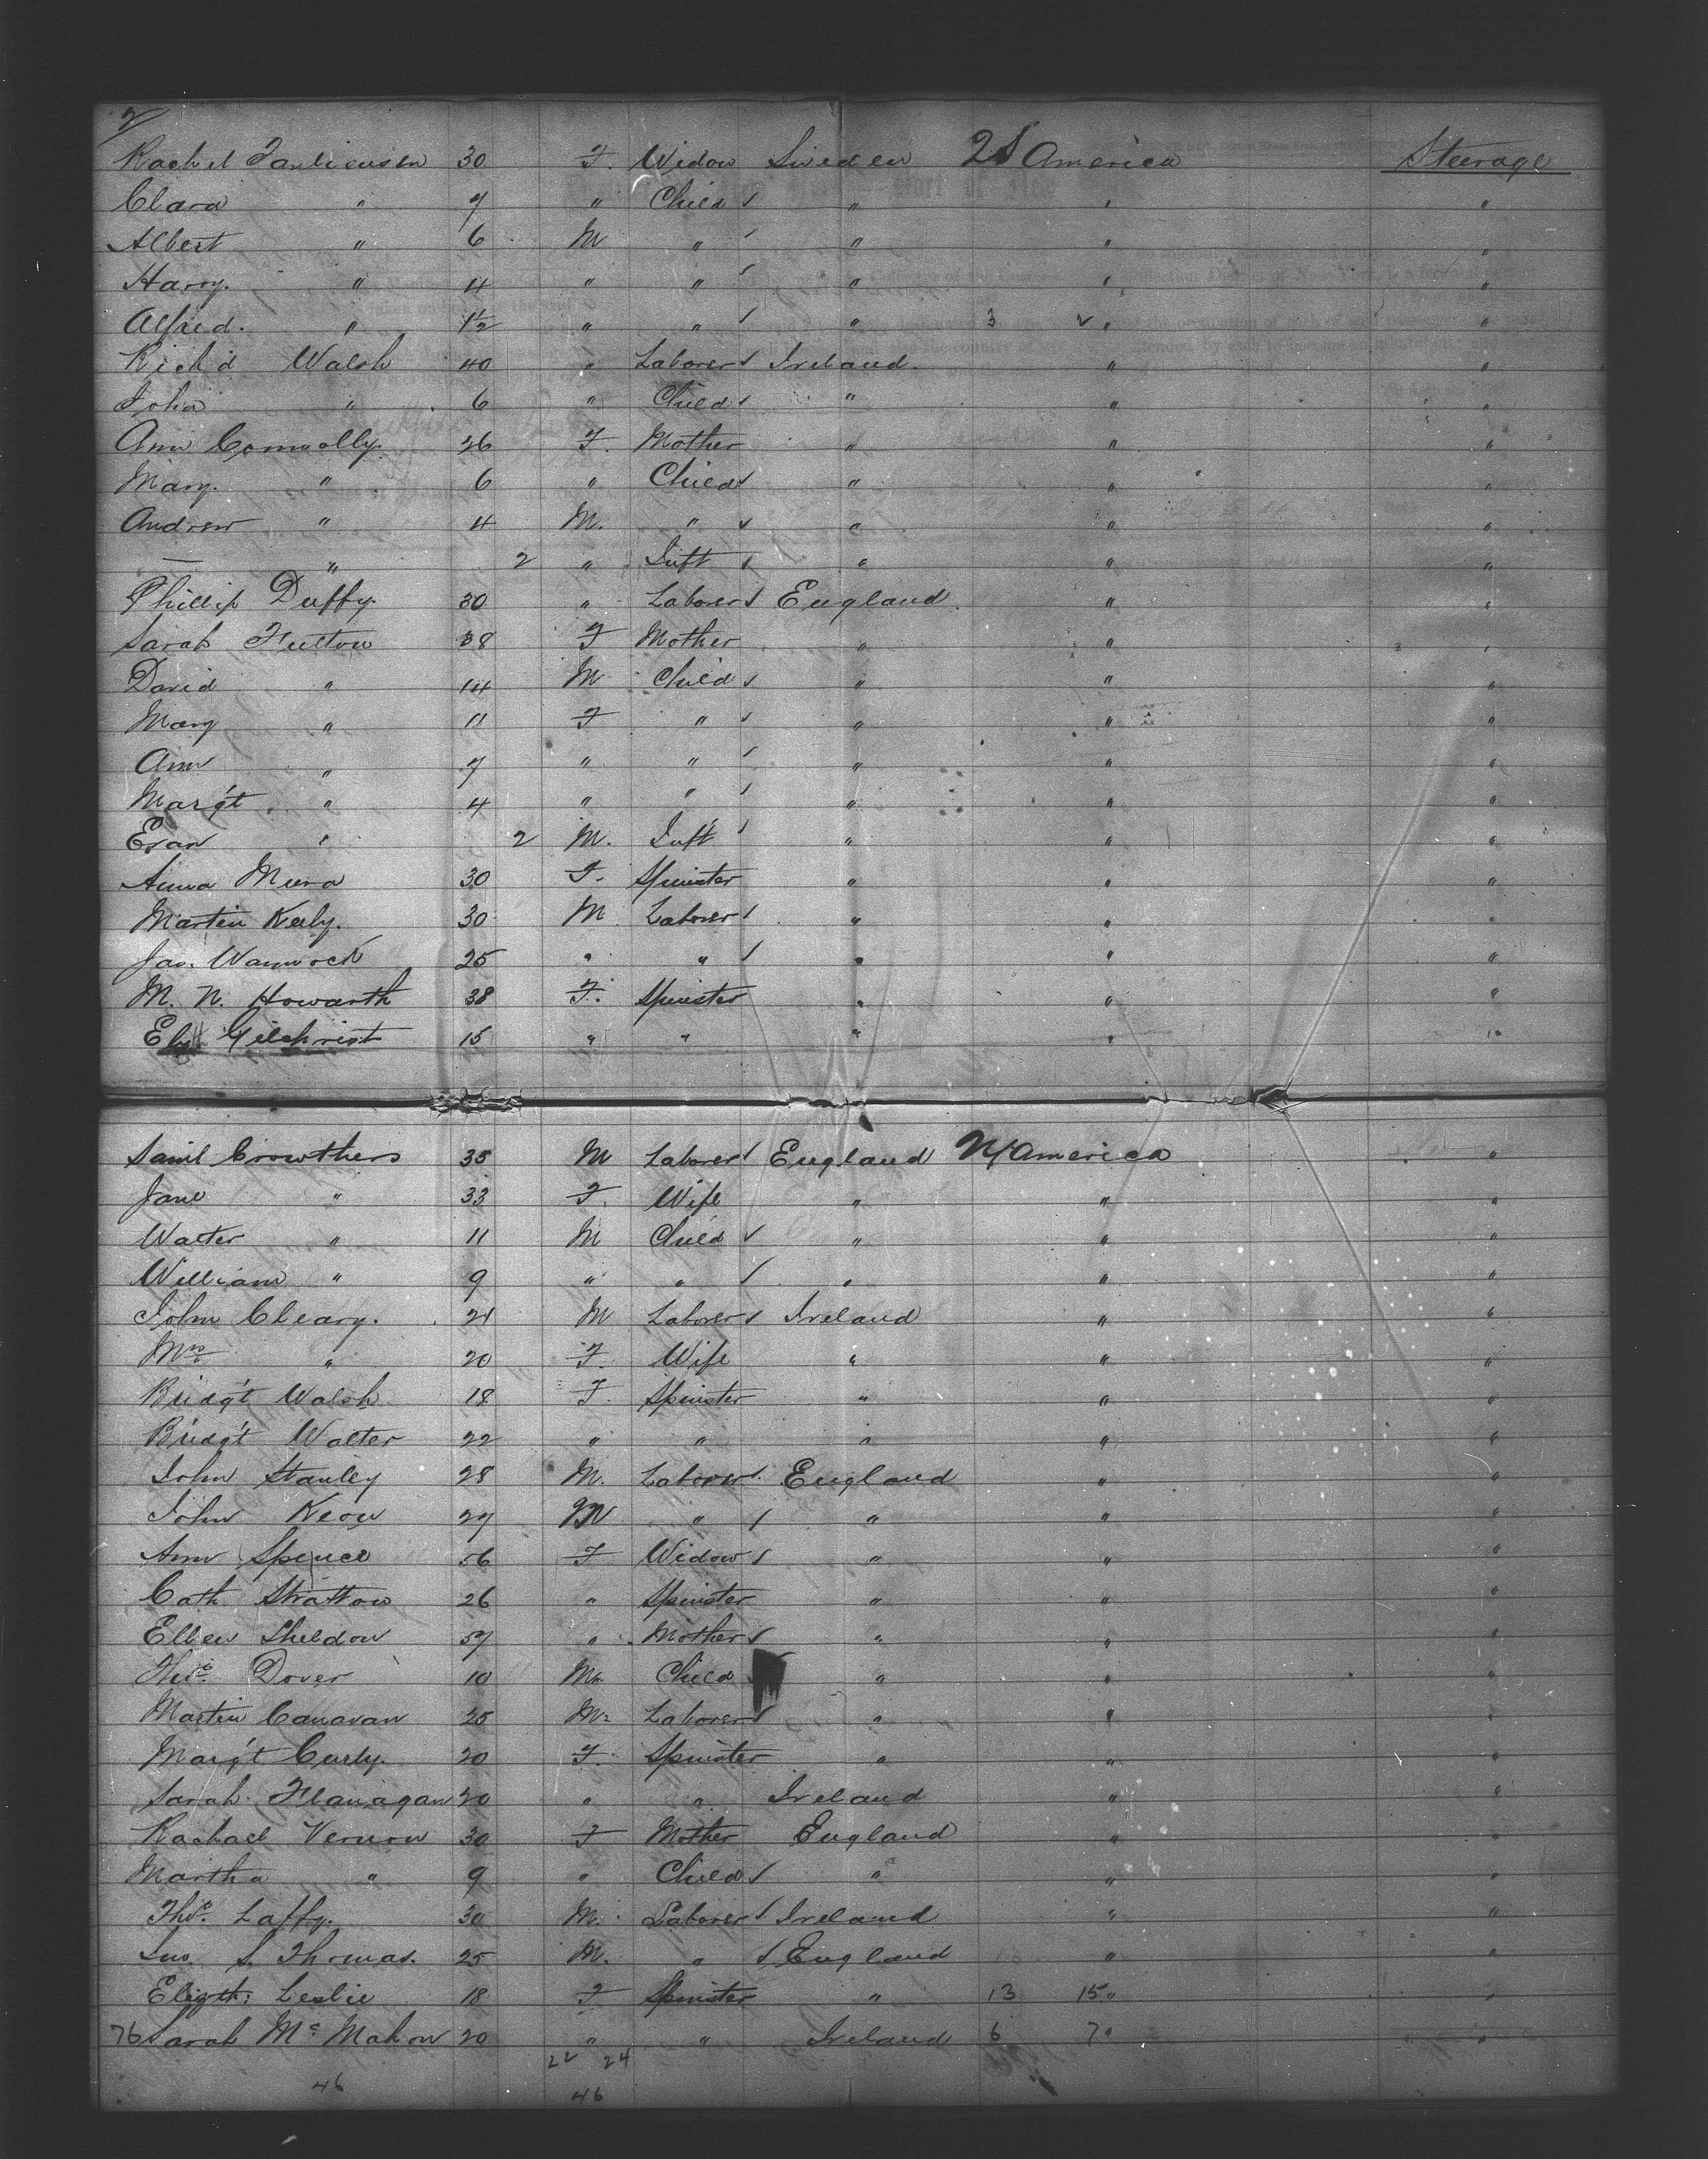 2
Rachel 30 F. Widow Sweden America Steerage
Clara " 7 " Child " " "
Albert " 6 M " " " "
Harry. " 4 " " " " "
Alfred. " 1½ " " " 3 2 " "
Rich'd Walsh 40 " Laborer Ireland. " "
John " 6 " Child " " "
Ann Connolly. 26 F. Mother " " "
Mary. " 6 " Child " " "
Andrew " 4 M. " " " "
— " 2 " Inft " " "
Phillip Duffy. 30 " Laborer England. " "
Sarah Fulton 38 F Mother " " "
David " 14 M Child " " "
Mary " 11 F " " " "
Ann " 7 " " " " "
Marg't " 4 " " " " "
Evan " 2 M. Inft " " "
Anna 30 F. Spinster " " "
Martin Keely. 30 M Laborer " " "
Jas. Warnock 25 " " " " "
M. N. Howarth 38 F. Spinster " " "
Gilchrist 15 " " " " "
Saml Crowthers 35 M Laborer England America "
Jane " 33 F. Wife " " "
Walter " 11 M Child " " "
William " 9 " " " " "
John Cleary. 21 M Laborer Ireland " "
Mrs " 20 F. Wife " " "
Bridg't Walsh 18 F. Spinster " " "
Bridg't Walter 22 " " " " "
John Stanley 28 M. Laborer England " "
John Keow 27 M " " " "
Ann Spence 56 F Widow " " "
Cath Stratton 26 " Spinster " " "
Ellen Sheldon 57 " Mother " " "
Thos. Dover 10 M. Child " " "
Martin Canavan 25 M. Laborer " " "
Marg't Curly. 20 F. Spinster " " "
Sarah Flanagan 20 " " Ireland " "
Rachael Vernon 30 F Mother England " "
Martha " 9 " Child " " "
Thos. Laffy. 30 M. Laborer Ireland " "
S. Thomas. 25 M. " England " "
Elizth: Leslie 18 F Spinster " 13 15 " "
76 Sarah McMahon 20 " " Ireland 6 7 " "
22 24
46 46